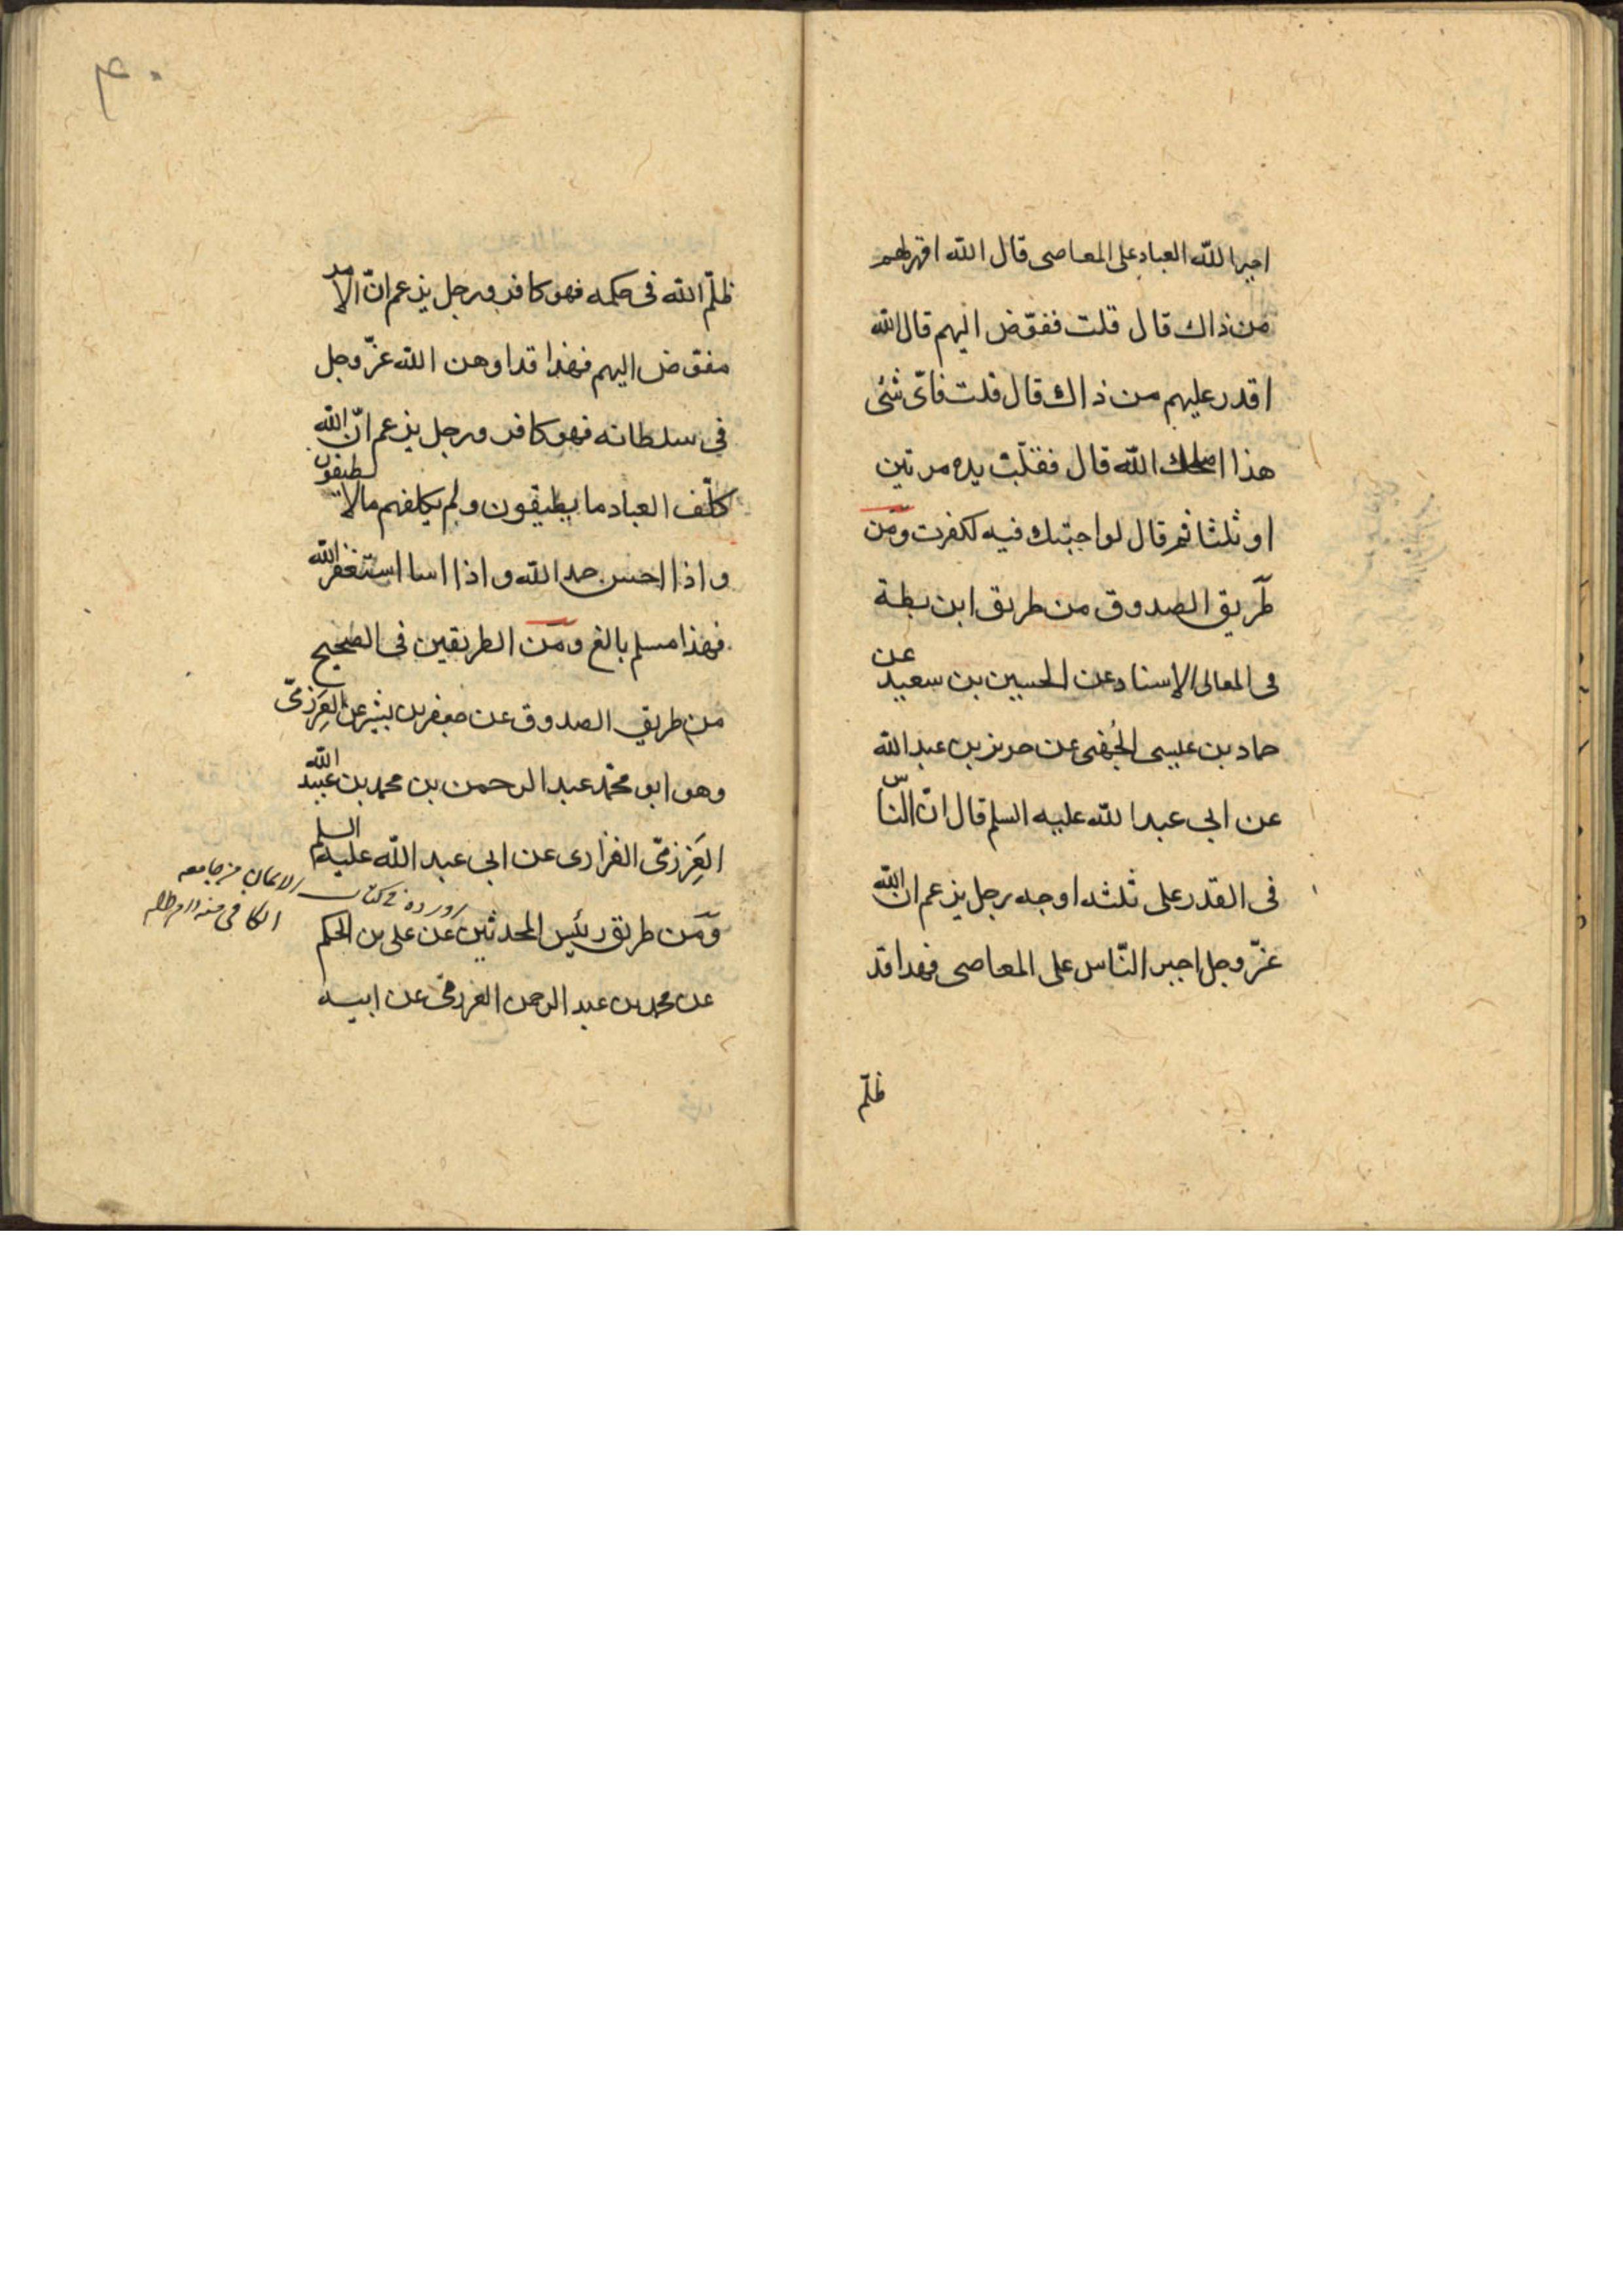 اجبر الله العباد على المعاصى قال الله اقهر لهم
من ذاك قال قلت ففوّض اليهم قال الله
اقدر عليهم من ذاك قال قلت فاىّ شئ
هذا اصلحك الله قال فقلّب يده مرتين
او ثلثا ثم قال لو اجبتك فيه لكفرت ومن
طريق الصدوق من طريق ابن بطة
فى المعالى الاسناد عن الحسين بن سعيد عن
حماد بن عيسى الجهنى عن حريز بن عبد الله
عن ابى عبد الله عليه السلم قال انّ النّاس
فى القدر على ثلثه اوجه رجل يزعم ان الله
عزّ وجل اجبر النّاس على المعاصى فهذا قد
ظلّم
۴۰
ظلّم الله فى حكمه فهو كافر ورجل يزعم انّ الامر
مفوّض اليهم فهذا قد اوهن الله عزّ وجل
فى سلطانه فهو كافر ورجل يزعم انّ الله
كلّف العباد ما يطيقون ولم يكلفهم ما لا يطيقون
واذا احسن حمد الله واذا اسا استغفر الله
فهذا مسلم بالغ ومن الطريقين فى الصحيح
من طريق الصدوق عن جعفر بن بشير عن العَرْزمىّ
وهو ابو محمّد عبد الرحمن بن محمد بن عبيد الله
العَرْزمىّ الفزارى عن ابى عبد الله عليه السلم
ومن طريق رئيس المحدثين عن على بن الحكم
عن محمد بن عبد الرحمن العرزمى عن ابيه
اورده فى كتاب الايمان من جامعه
الكافى منه دام ظله